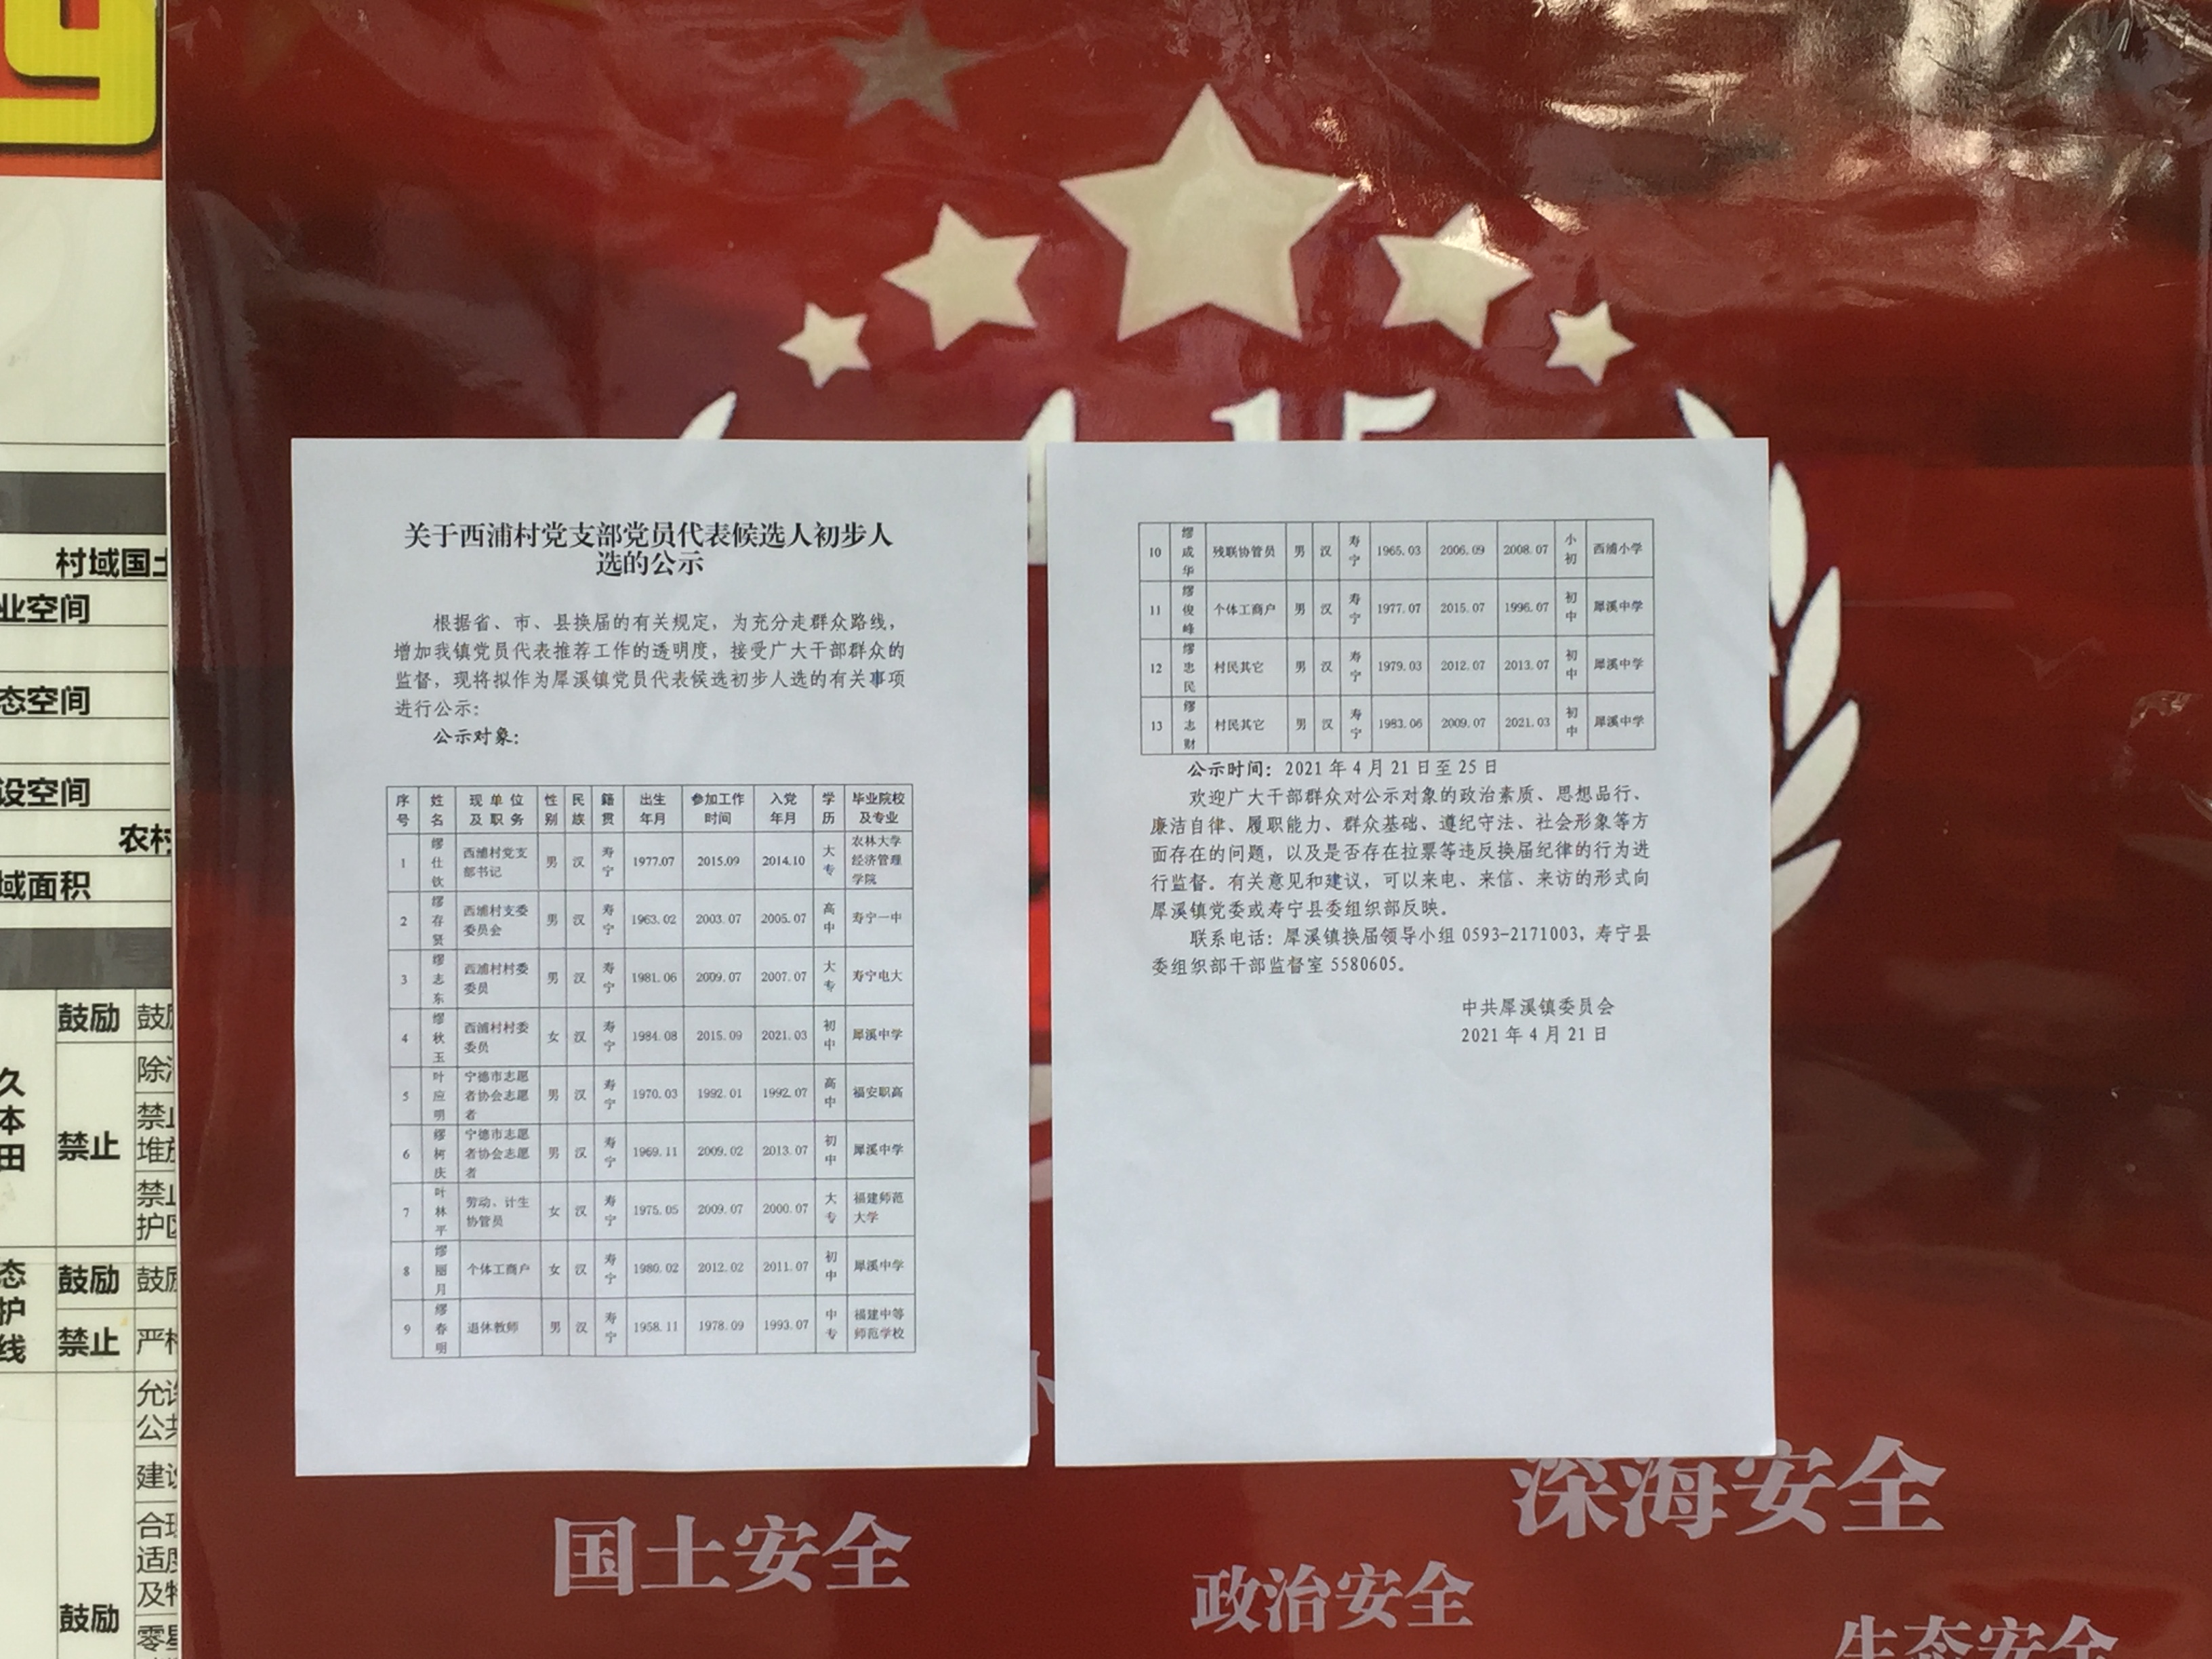 关于西浦村党支部党员代表候选人初步人
选的公示
根据省、市、县换届的有关规定，为充分走群众路线，
增加我镇党员代表推荐工作的透明度，接受广大干部群众的
监督，现将拟作为犀溪镇党员代表候选初步人选的有关事项
进行公示：
公示对象：
序号 姓名 现单位及职务 性别 民族 籍贯 出生年月 参加工作时间 入党年月 学历 毕业院校及专业
1 缪仕钦 西浦村党支部书记 男 汉 寿宁 1977.07 2015.09 2014.10 大专 农林大学经济管理学院
2 缪存贤 西浦村支委委员会 男 汉 寿宁 1963.02 2003.07 2005.07 高中 寿宁一中
3 缪志东 西浦村村委委员 男 汉 寿宁 1981.06 2009.07 2007.07 大专 寿宁电大
4 缪秋玉 西浦村村委委员 女 汉 寿宁 1984.08 2015.09 2021.03 初中 犀溪中学
5 叶应明 宁德市志愿者协会志愿者 男 汉 寿宁 1970.03 1992.01 1992.07 高中 福安职高
6 缪柯庆 宁德市志愿者协会志愿者 男 汉 寿宁 1969.11 2009.02 2013.07 初中 犀溪中学
7 叶林平 劳动、计生协管员 女 汉 寿宁 1975.05 2009.07 2000.07 大专 福建师范大学
8 缪丽月 个体工商户 女 汉 寿宁 1980.02 2012.02 2011.07 初中 犀溪中学
9 缪春明 退休教师 男 汉 寿宁 1958.11 1978.09 1993.07 中专 福建中等师范学校
10 缪成华 残联协管员 男 汉 寿宁 1965.03 2006.09 2008.07 小初 西浦小学
11 缪俊峰 个体工商户 男 汉 寿宁 1977.07 2015.07 1996.07 初中 犀溪中学
12 缪忠民 村民其它 男 汉 寿宁 1979.03 2012.07 2013.07 初中 犀溪中学
13 缪志财 村民其它 男 汉 寿宁 1983.06 2009.07 2021.03 初中 犀溪中学
公示时间：2021年4月21日至25日
欢迎广大干部群众对公示对象的政治素质、思想品行、
廉洁自律、履职能力、群众基础、遵纪守法、社会形象等方
面存在的问题，以及是否存在拉票等违反换届纪律的行为进
行监督。有关意见和建议，可以来电、来信、来访的形式向
犀溪镇党委或寿宁县委组织部反映。
联系电话：犀溪镇换届领导小组 0593-2171003，寿宁县
委组织部干部监督室 5580605。
中共犀溪镇委员会
2021年4月21日
深海安全
国土安全
政治安全
生态安全
村域国土
业空间
态空间
设空间
农村
域面积
鼓励
禁止
鼓励
禁止
严格
建设
鼓励